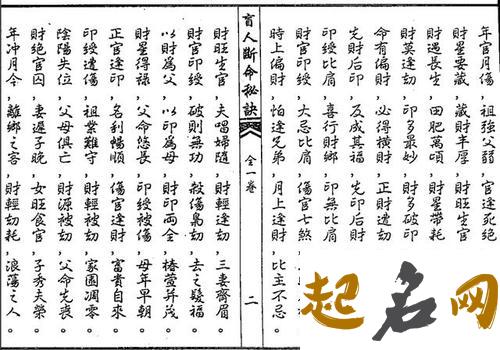 年官月傷 祖強父弱。官逢死絕
財星要藏 藏財丰厚。財旺生官
財遇長生 田肥萬頃。財星帶耗
財莫逢劫 印多最妙。財多破印
命有偏財 必得橫財。正財逢劫
先財后印 反成其福。先印財
印綬比肩 喜行財鄉。印無比肩
財官印綬 大忌比肩。傷官七煞
時上偏財 怕逢兄弟。月上逢劫 比主不忌。
盲人斷命秘訣 全一卷 二
財旺生官 夫唱婦隨。財輕逢劫 三妻齊眉。
財官印綬 破則無功。救傷梟劫 去之發福。
以財為父 以印為母。財印兩全 椿萱并茂。
財星得祿 父命悠長。印綬被傷 母年早朝。
正官逢印 名利暢順。傷官逢財 富貴自來。
印綬遭傷 祖業難守。財輕逢劫 家園凋零。
陰陽失位 父母俱亡。財源被劫 父命先喪。
財絕官囚 妻遲子晚。女旺食官 子秀夫榮。
年冲月令 離鄉之客。財輕劫耗 浪蕩之人。
起名网